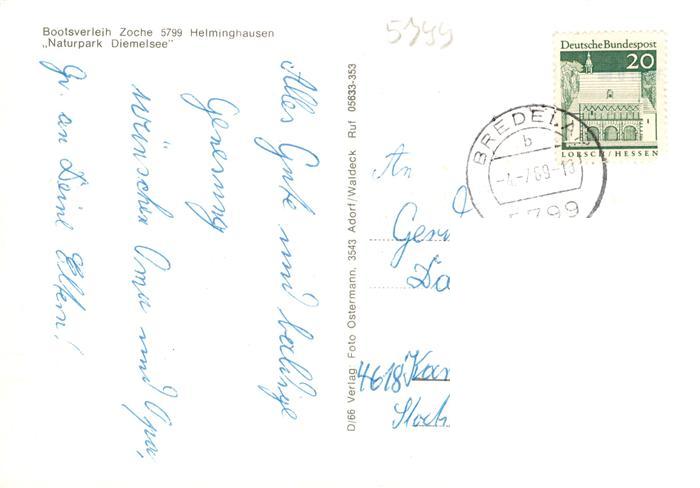 Bootsverleih Zoche 5799 Helminghausen
„Naturpark Diemelsee"
Alles Gute und baldige
Genesung
wünschen Oma und Opa,
Gr. an Deine Eltern!
D/66 Verlag Foto Ostermann, 3543 Adorf/Waldeck Ruf 05633-353
5799
Deutsche Bundespost
20
LORSCH/HESSEN
BREDELA
b
5799
An
Ger
Da
4618 Kam
Stock